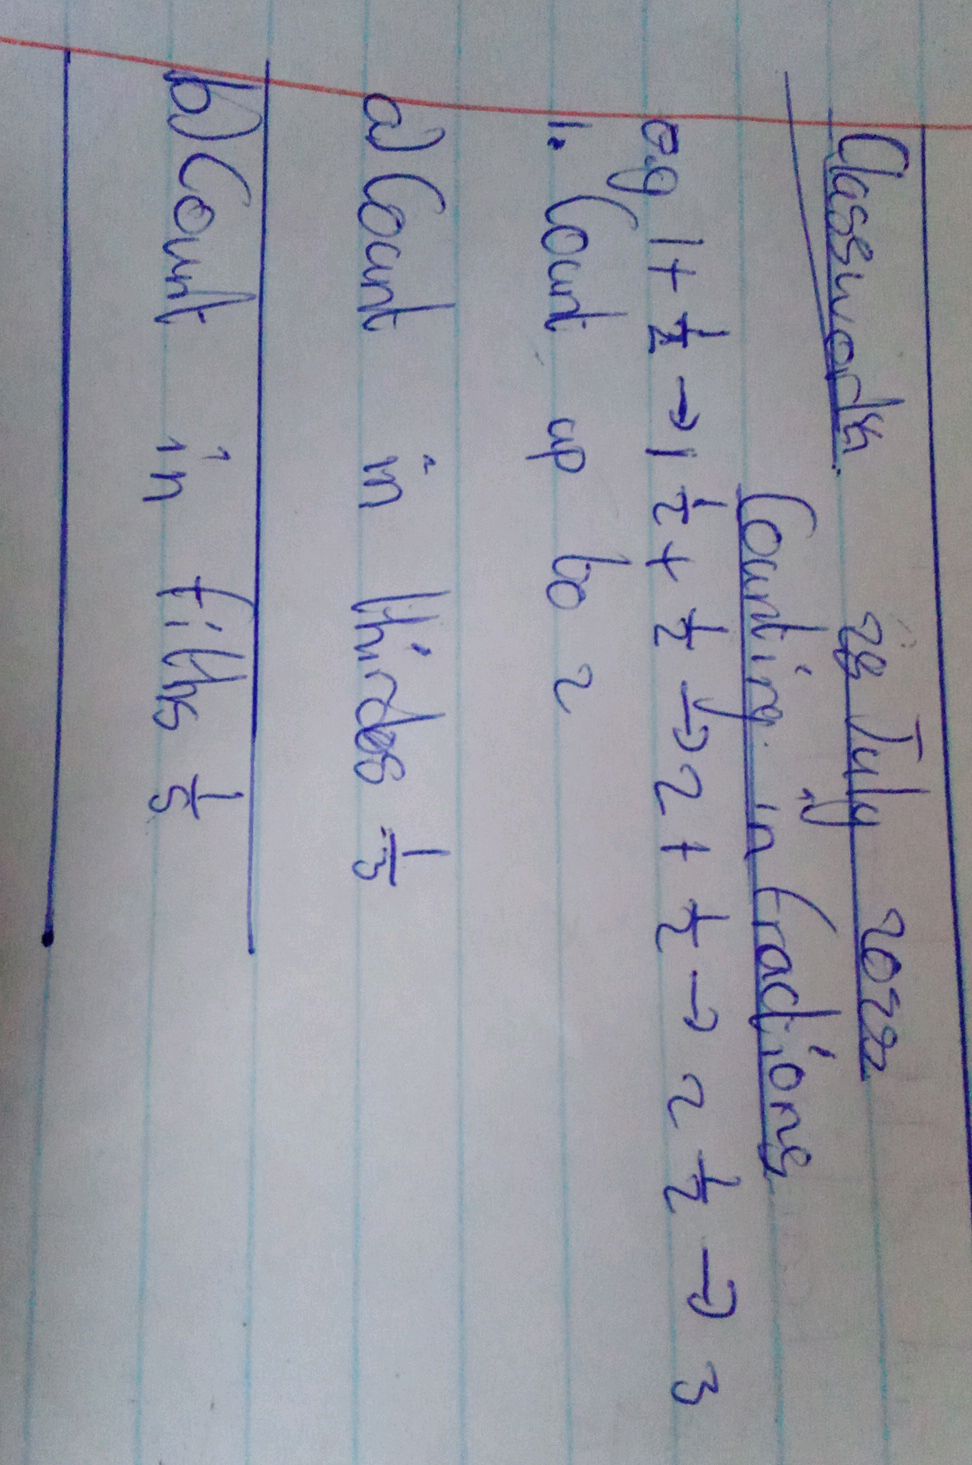 Classwork. 28 July 2022
Counting in fractions
e.g 1 + 1/2 → 1 1/2 + 1/2 → 2 + 1/2 → 2 1/2 → 3
1. Count up to 2
a) Count in thirds 1/3
b) Count in fifths 1/5